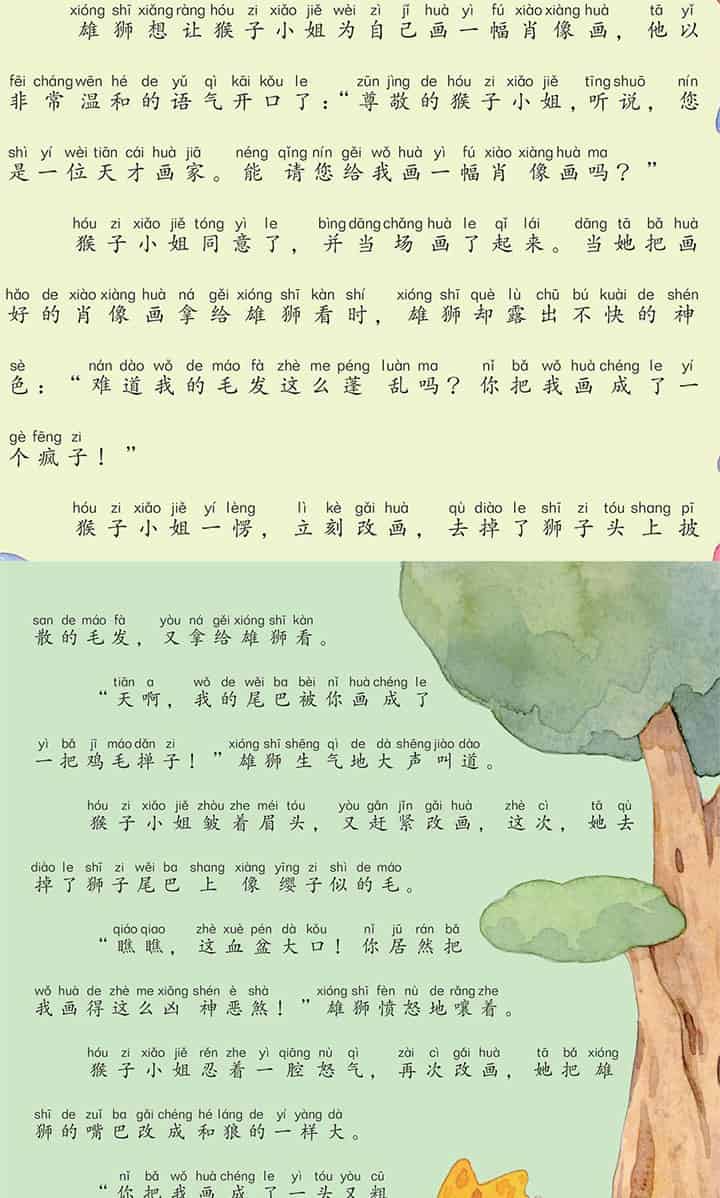 xióng shī xiǎng ràng hóu zi xiǎo jiě wèi zì jǐ huà yì fú xiào xiàng huà tā yǐ
雄狮想让猴子小姐为自己画一幅肖像画，他以
fēi cháng wēn hé de yǔ qì kāi kǒu le zūn jìng de hóu zi xiǎo jiě tīng shuō nín
非常温和的语气开口了：“尊敬的猴子小姐，听说，您
shì yí wèi tiān cái huà jiā néng qǐng nín gěi wǒ huà yì fú xiào xiàng huà ma
是一位天才画家。能请您给我画一幅肖像画吗？”
hóu zi xiǎo jiě tóng yì le bìng dāng chǎng huà le qǐ lái dāng tā bǎ huà
猴子小姐同意了，并当场画了起来。当她把画
hǎo de xiào xiàng huà ná gěi xióng shī kàn shí xióng shī què lù chū bú kuài de shén
好的肖像画拿给雄狮看时，雄狮却露出不快的神
sè nán dào wǒ de máo fà zhè me péng luàn ma nǐ bǎ wǒ huà chéng le yí
色：“难道我的毛发这么蓬乱吗？你把我画成了一
gè fēng zi
个疯子！”
hóu zi xiǎo jiě yí lèng lì kè gǎi huà qù diào le shī zi tóu shang pī
猴子小姐一愣，立刻改画，去掉了狮子头上披
san de máo fà yòu ná gěi xióng shī kàn
散的毛发，又拿给雄狮看。
tiān a wǒ de wěi ba bèi nǐ huà chéng le
“天啊，我的尾巴被你画成了
yì bǎ jī máo dǎn zi xióng shī shēng qì de dà shēng jiào dào
一把鸡毛掸子！”雄狮生气地大声叫道。
hóu zi xiǎo jiě zhòu zhe méi tóu yòu gǎn jǐn gǎi huà zhè cì tā qù
猴子小姐皱着眉头，又赶紧改画，这次，她去
diào le shī zi wěi ba shang xiàng yīng zi shì de máo
掉了狮子尾巴上像缨子似的毛。
qiáo qiao zhè xuè pén dà kǒu nǐ jū rán bǎ
“瞧瞧，这血盆大口！你居然把
wǒ huà de zhè me xiōng shén è shà xióng shī fèn nù de rǎng zhe
我画得这么凶神恶煞！”雄狮愤怒地嚷着。
hóu zi xiǎo jiě rěn zhe yì qiāng nù qì zài cì gǎi huà tā bǎ xióng
猴子小姐忍着一腔怒气，再次改画，她把雄
shī de zuǐ ba gǎi chéng hé láng de yí yàng dà
狮的嘴巴改成和狼的一样大。
nǐ bǎ wǒ huà chéng le yì tóu yòu cū
“你把我画成了一头又粗